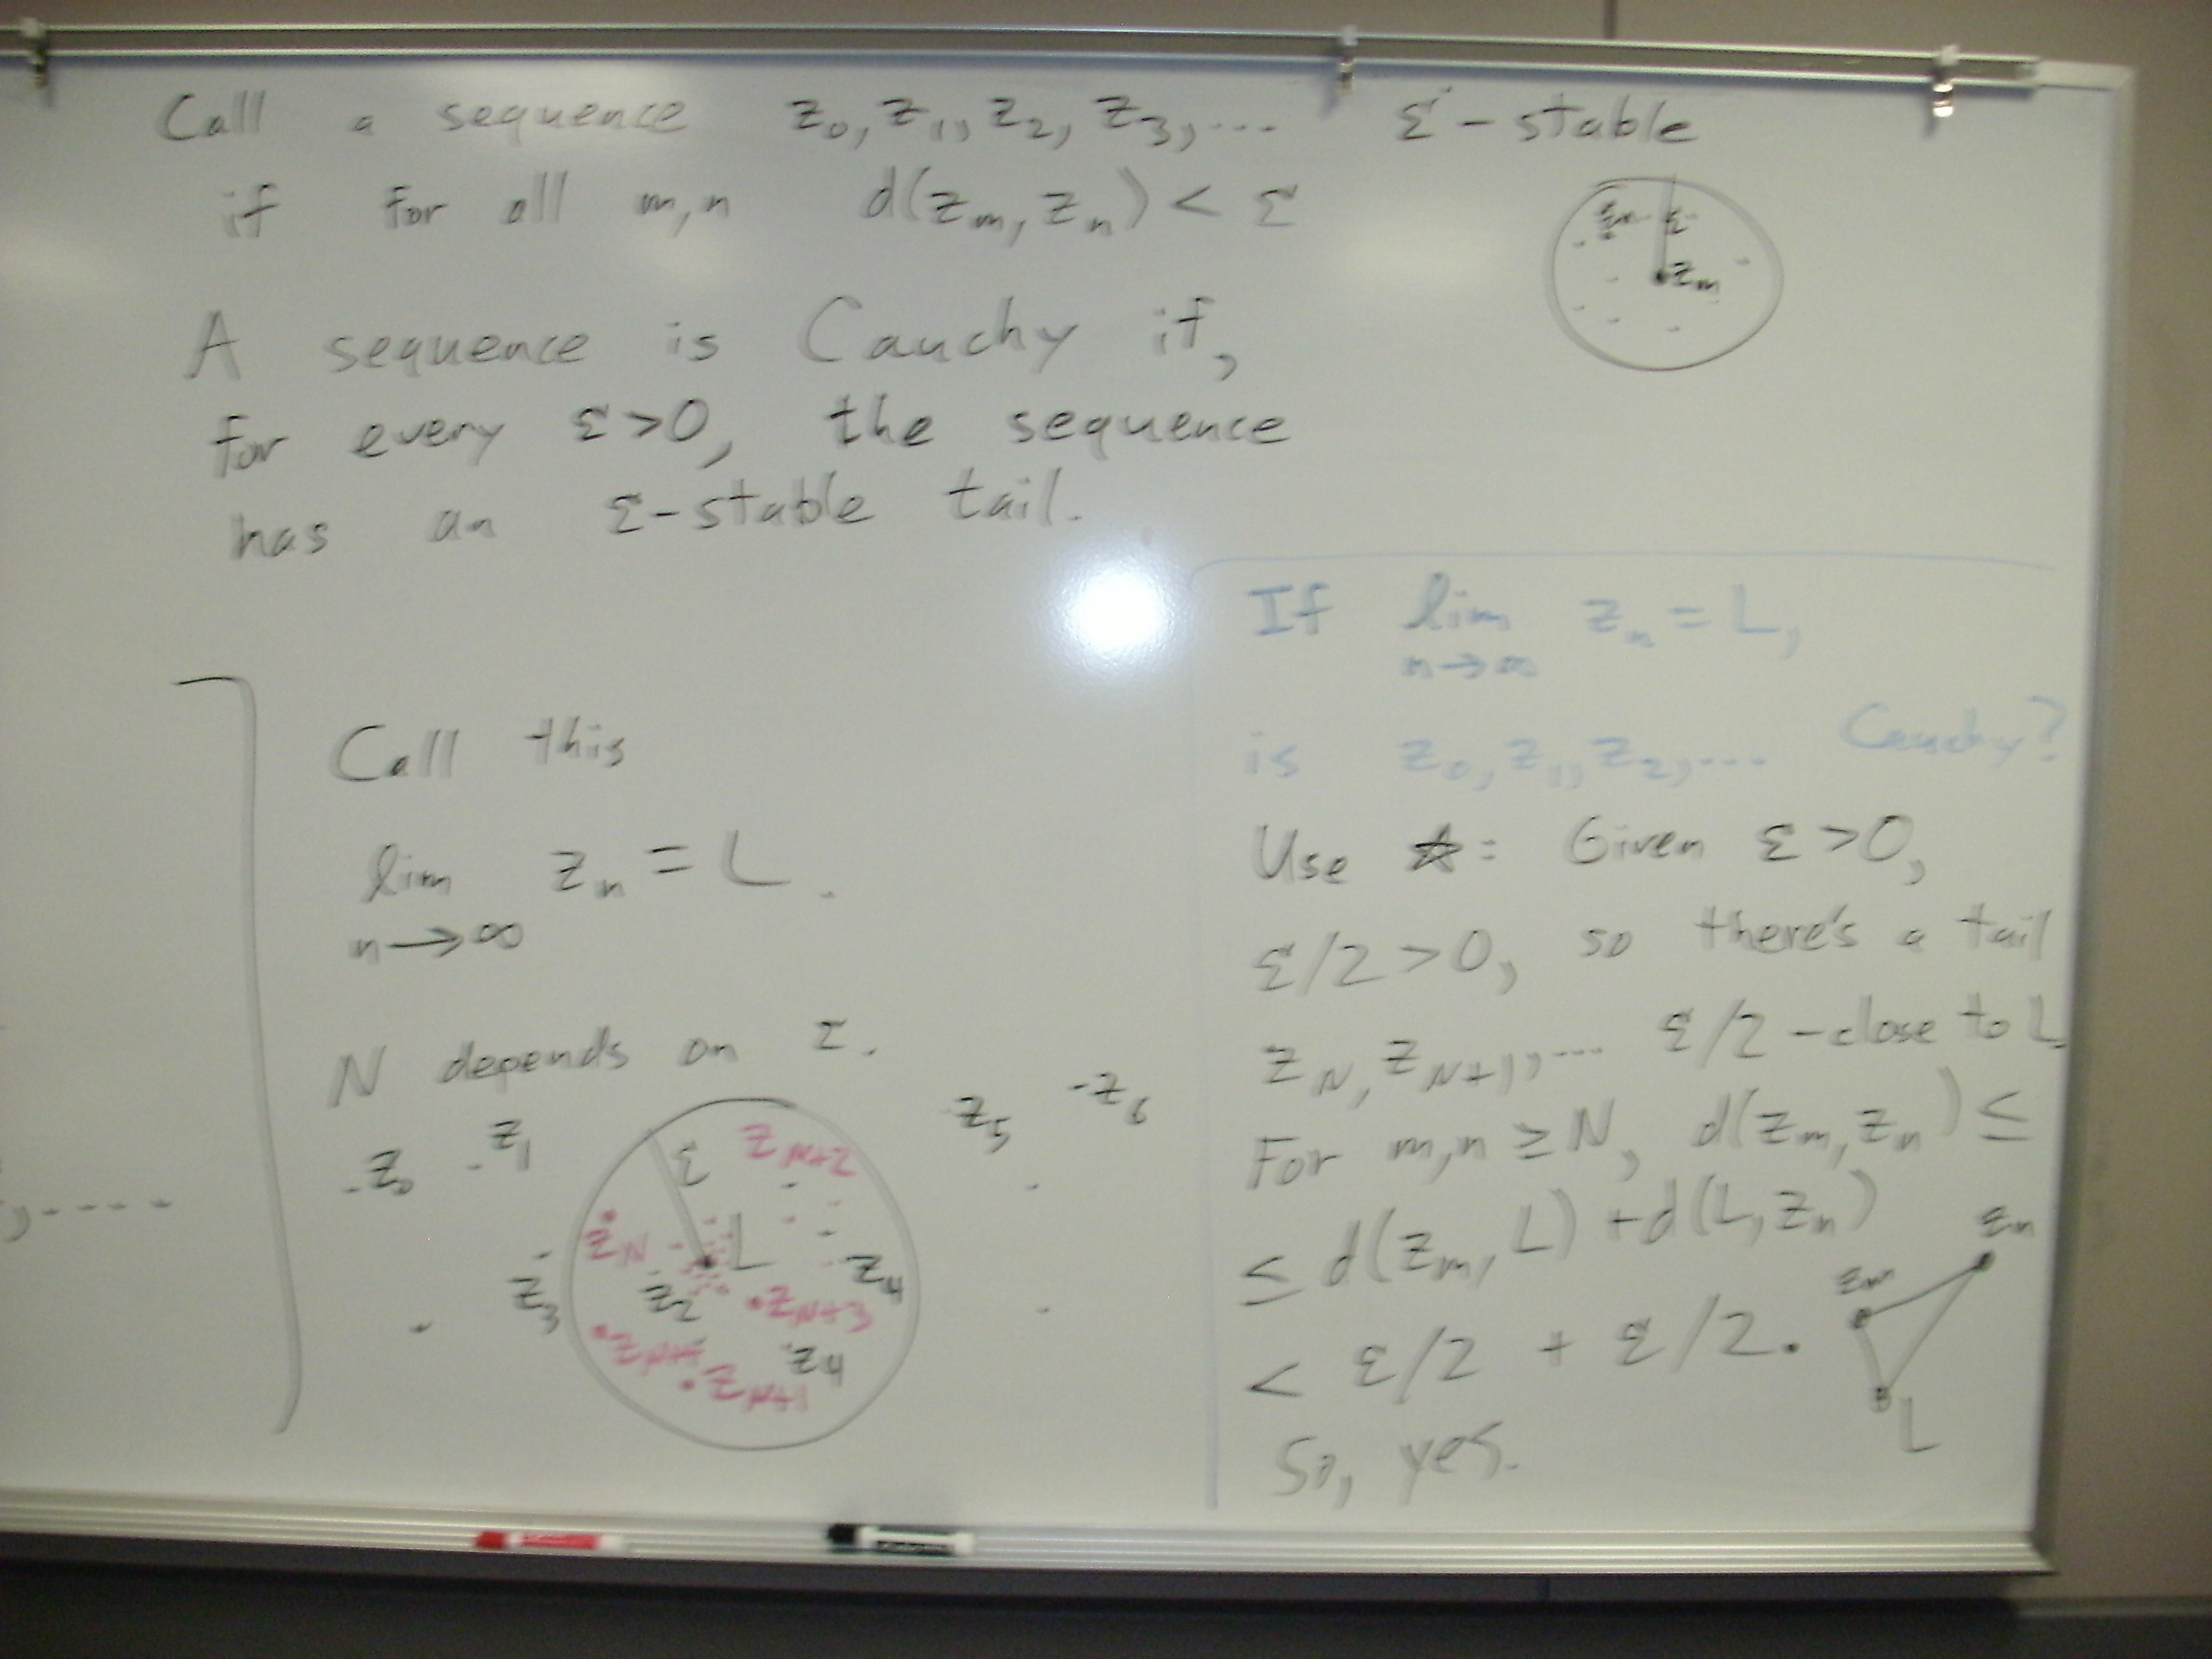 Call a sequence z₀, z₁, z₂, z₃, ... ε-stable
if for all m,n d(zₘ, zₙ) < ε
ε
zₘ
A sequence is Cauchy if,
for every ε>0, the sequence
has an ε-stable tail.
Call this
lim zₙ = L.
n→∞
N depends on ε.
z₀ z₁ ε z_{N+2} z₅ z₆
z_N L
z₃ z₂ z_{N+3} z₄
z₄
z_{N+1}
, - - - - -
If lim zₙ = L,
n→∞
is z₀, z₁, z₂, ... Cauchy?
Use ☆: Given ε>0,
ε/2 >0, so there's a tail
z_N, z_{N+1}, ... ε/2-close to L
For m,n ≥ N, d(zₘ, zₙ) ≤
≤ d(zₘ, L) + d(L, zₙ)
< ε/2 + ε/2.
So, yes.
zₙ
zₘ
L